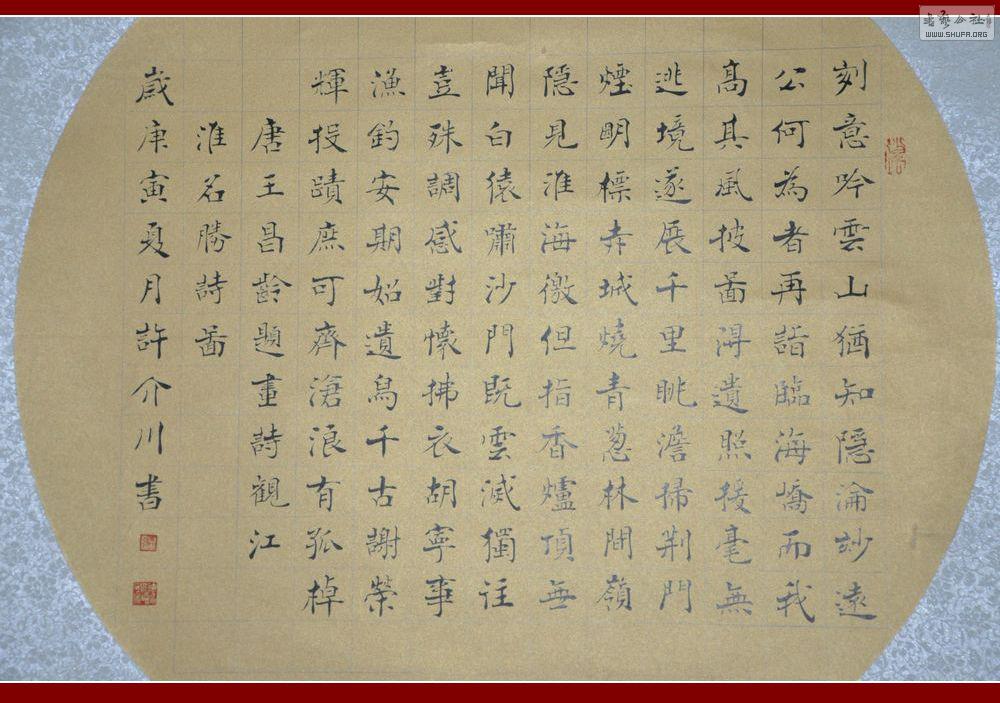 刻意吟雲山猶知隱淪妙遠
公何為者再詣臨海嶠而我
髙其風披啚得遺照援毫無
逃境遂展千里眺澹掃荆門
煙明標赤城燒青葱林間嶺
隱見淮海徼但指香爐頂無
聞白猿嘯沙門既雲滅獨往
豈殊調感對懷拂衣胡寧事
漁釣安期始遺舄千古謝榮
輝投蹟庶可齊滄浪有孤棹
唐王昌齡題畫詩觀江
淮名勝詩啚
歲庚寅夏月許介川書
WWW.SHUFA.ORG